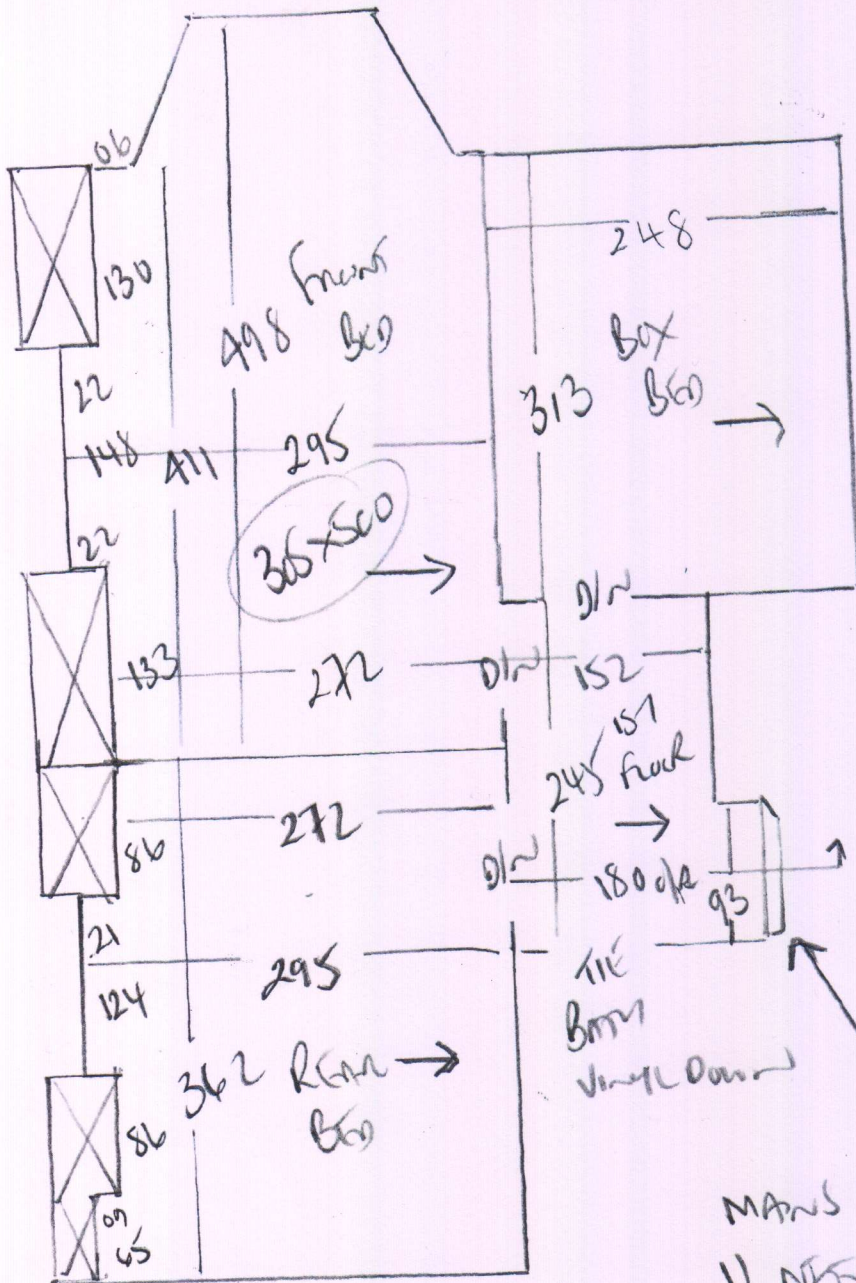 06
130
248
FRONT
BED
498
BOX
BED
313
22
148
411
295
22
305x500
D/W
133
272
D/W
152
1ST
FLOOR
245
272
86
D/W
180 o/a
93
21
295
124
TILE
BATH
VINYL DOWN
362
REAR
BED
86
09
65
MAINS